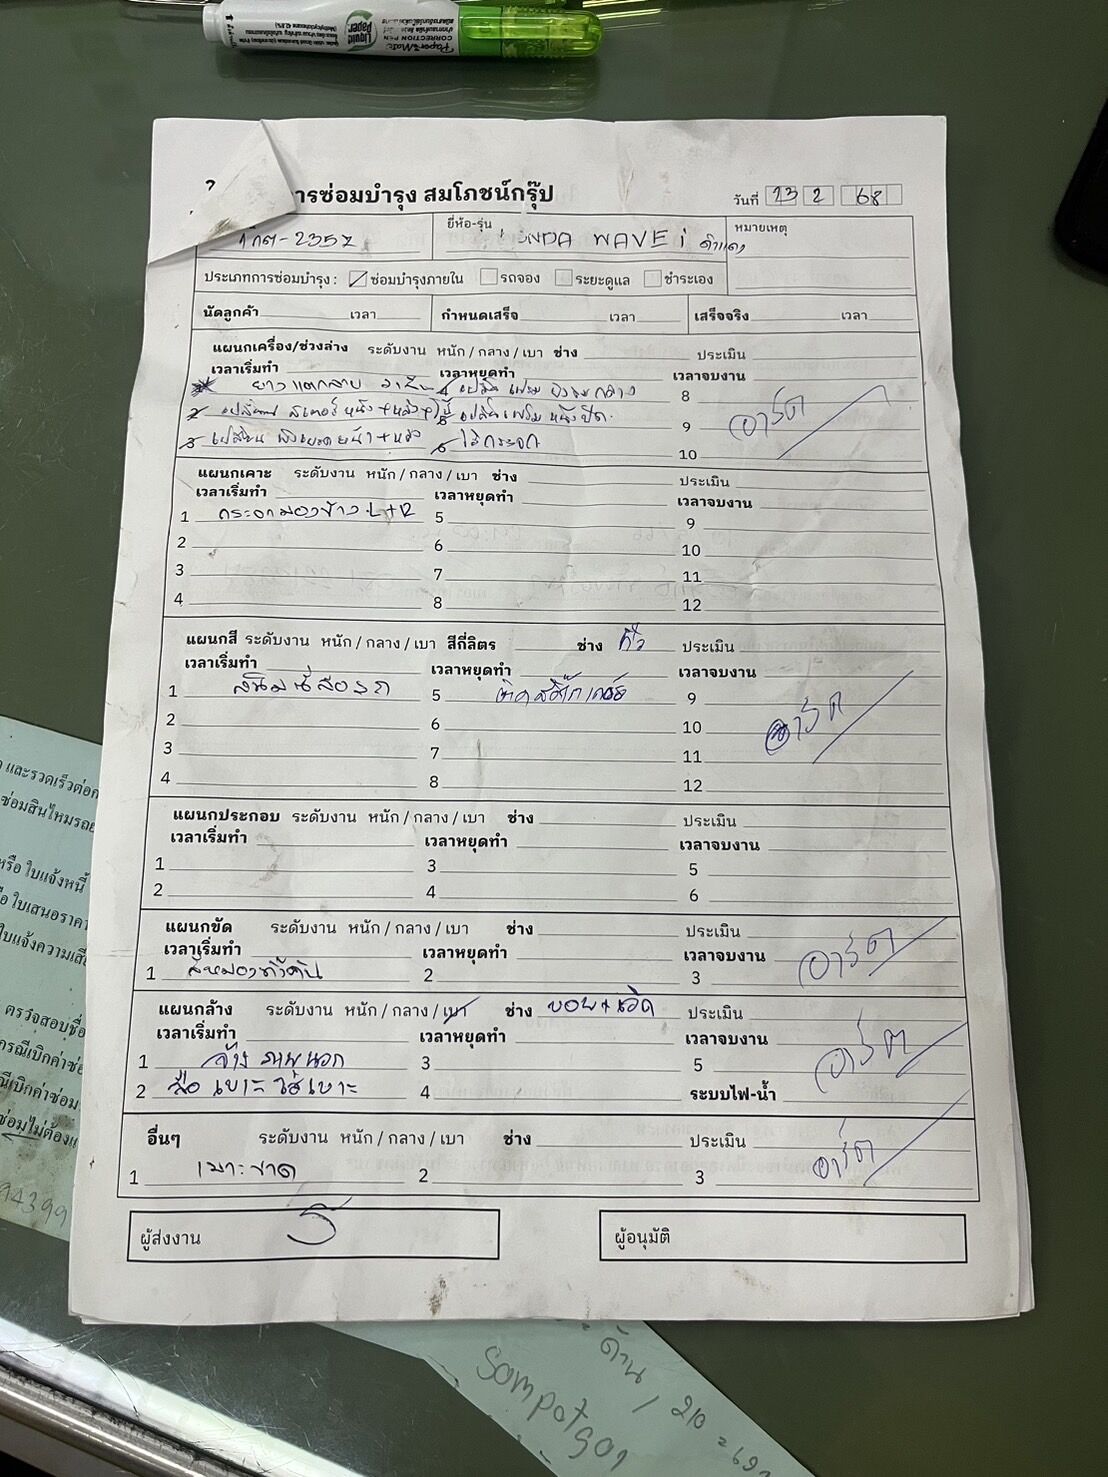 Liquid Paper
Paper Mate
CORRECTION PEN
ารซ่อมบำรุง สมโภชน์กรุ๊ป
วันที่ 23 2 68
1กต-2357
ยี่ห้อ-รุ่น NDA WAVE i ดำแดง
หมายเหตุ
ประเภทการซ่อมบำรุง : ซ่อมบำรุงภายใน รถจอง ระยะดูแล ชำระเอง
นัดลูกค้า เวลา กำหนดเสร็จ เวลา เสร็จจริง เวลา
แผนกเครื่อง/ช่วงล่าง ระดับงาน หนัก / กลาง / เบา ช่าง ประเมิน
เวลาเริ่มทำ เวลาหยุดทำ เวลาจบงาน
ยางแตกลาย 4 8
2 เปลี่ยน สเตอร์หน้า+หลัง+โซ่ 5 9 อาร์ต
3 เปลี่ยน หน้า+หลัง 6 ไส้กรอง 10
แผนกเคาะ ระดับงาน หนัก / กลาง / เบา ช่าง ประเมิน
เวลาเริ่มทำ เวลาหยุดทำ เวลาจบงาน
1 กระจกมองข้าง L+R 5 9
2 6 10
3 7 11
4 8 12
แผนกสี ระดับงาน หนัก / กลาง / เบา สีกี่ลิตร ช่าง ประเมิน
เวลาเริ่มทำ เวลาหยุดทำ เวลาจบงาน
1 5 ติดสติ๊กเกอร์ 9
2 6 10 อาร์ต
3 7 11
4 8 12
แผนกประกอบ ระดับงาน หนัก / กลาง / เบา ช่าง ประเมิน
เวลาเริ่มทำ เวลาหยุดทำ เวลาจบงาน
1 3 5
2 4 6
แผนกขัด ระดับงาน หนัก / กลาง / เบา ช่าง ประเมิน
เวลาเริ่มทำ เวลาหยุดทำ เวลาจบงาน
1 สีหมองทั้งคัน 2 3 อาร์ต
แผนกล้าง ระดับงาน หนัก / กลาง / เบา ช่าง ประเมิน
เวลาเริ่มทำ เวลาหยุดทำ เวลาจบงาน
1 ล้าง ภายนอก 3 5 อาร์ต
2 เบาะ ใส่เบาะ 4 ระบบไฟ-น้ำ
อื่นๆ ระดับงาน หนัก / กลาง / เบา ช่าง ประเมิน
1 เบาะขาด 2 3 อาร์ต
ผู้ส่งงาน ผู้อนุมัติ
และรวดเร็วต่อ
ซ่อมสินไหมรถย
หรือ ใบแจ้งหนี้
ใบเสนอราคา
ใบแจ้งความเสี
ตรวจสอบชื่อ
กรณีเบิกค่าซ่อ
ณีเบิกค่าซ่อม
ซ่อมไม่ต้อง
94399
ด้าน / 210 = 69
Sompotgor